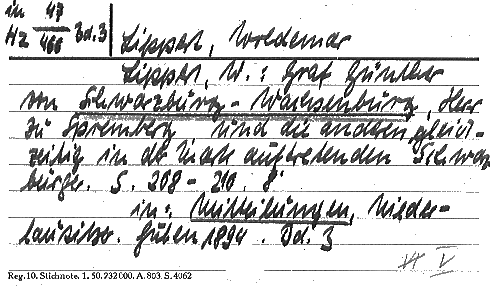 in 47
HZ 466 Bd. 3
Lippert, Woldemar
Lippert, W.: Graf Günther
von Schwarzburg-Wachsenburg, Herr
zu Spremberg und die anderen gleich-
zeitig in der Mark auftretenden Schwarz
burger. S. 208 - 210. 8°
in: Mitteilungen, Nieder-
lausitzer. Guben 1894. Bd. 3
Reg. 10. Stichnote. 1. 50. 232000. A. 803. S. 4062
V